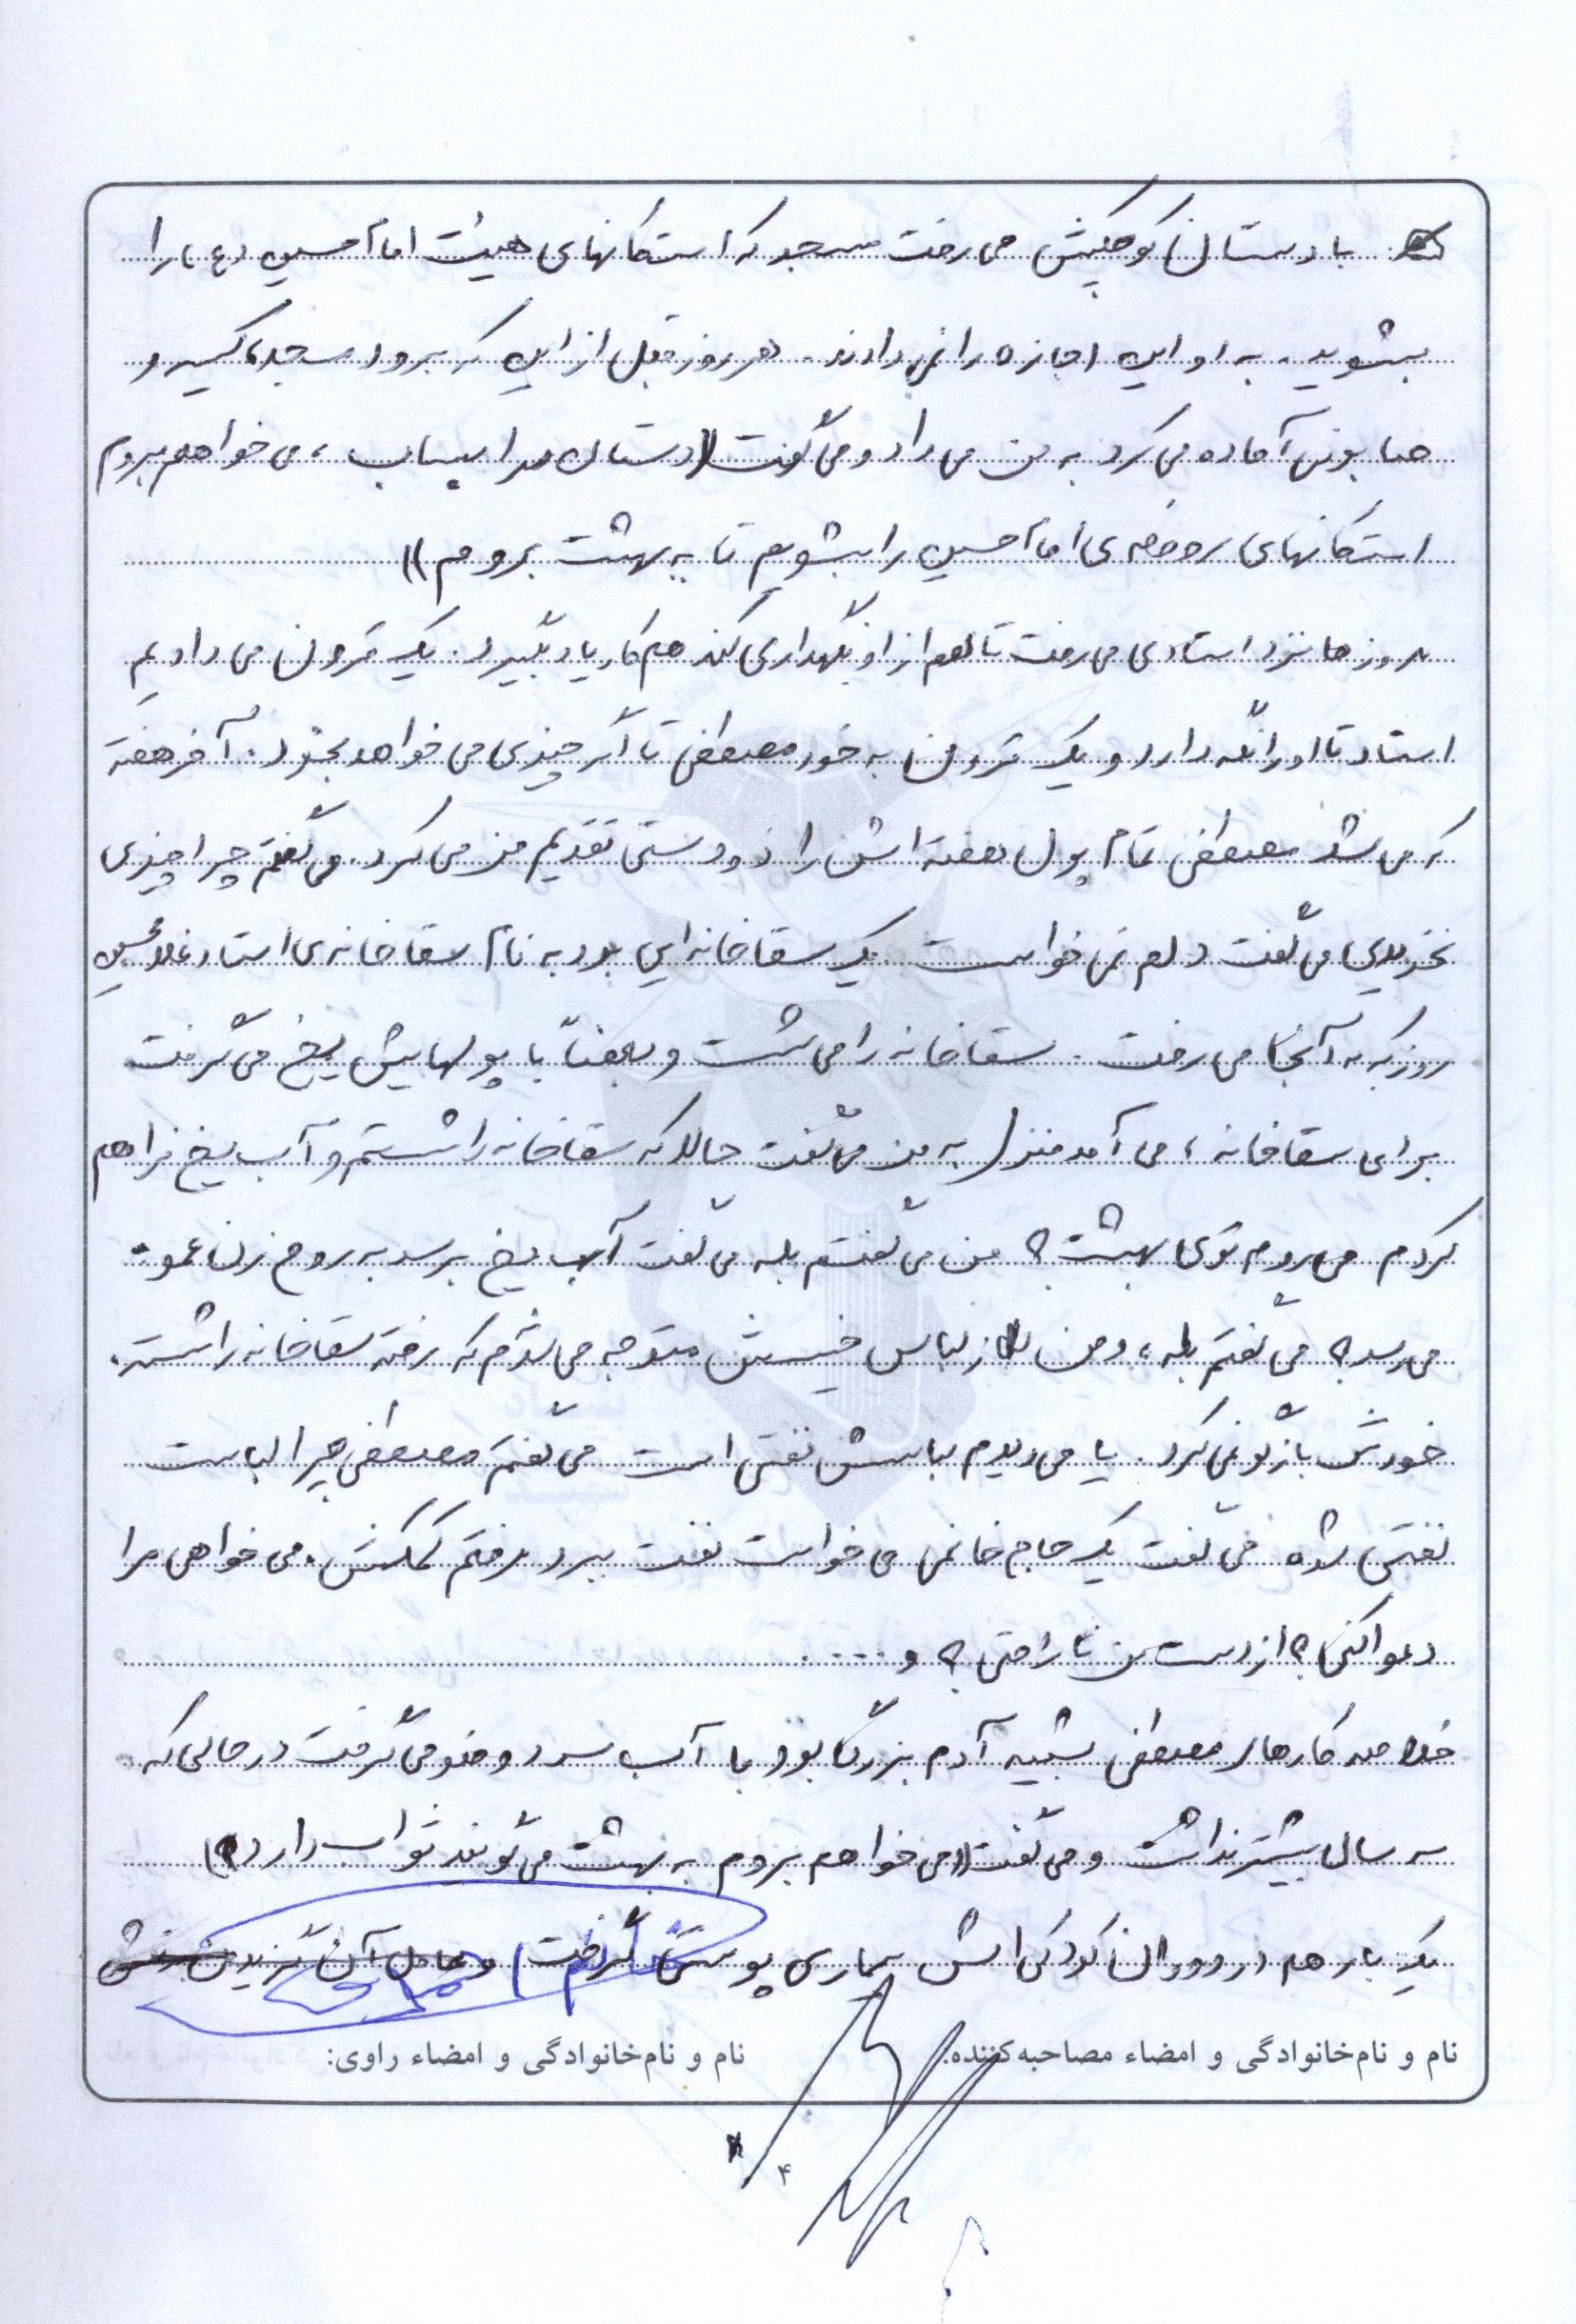 با دستان کوچکش می رفت مسجد که استکانهای هیئت امام حسین (ع) را
بشوید. به او این اجازه را نمی دادند. هر روز قبل از این که برود مسجد، کیسه و
صابونی آماده می کرد به من می داد و می گفت «دستان مرا بساب، می خواهم بروم
استکانهای روضه ی امام حسین را بشویم تا به بهشت بروم»
روزها نزد استادی می رفت تا هم از او نگهداری کند هم کار یاد بگیرد. یک قرون می دادیم
استاد تا او را نگه دارد و یک قرون به خود مصطفی تا اگر چیزی می خواهد بخرد. آخر هفته
که می شد مصطفی تمام پول هفته اش را دو دستی تقدیم من می کرد. می گفتم چرا چیزی
نخریدی می گفت دلم نمی خواست یک سقاخانه ایی بود به نام سقاخانه ی استاد غلامحسین
روز که به آنجا می رفت. سقاخانه را می شست و بعضاً با پولهایش یخ می گرفت
برای سقاخانه، می آمد منزل به من می گفت حالا که سقاخانه را شستم و آب یخ فراهم
کردم می روم توی بهشت؟ من می گفتم بله می گفت آب یخ برسد به روح زن عمو
می رسد؟ می گفتم بله، و من از لباس خیسش متوجه می شدم که رفته سقاخانه را شسته.
خودش بازگو نمی کرد. یا می دیدم لباسش نفتی است می گفتم مصطفی چرا لباست
نفتی شده می گفت یک حاج خانمی می خواست نفت ببرد رفتم کمکش. می خواهی مرا
دعوا کنی؟ از دست من ناراحتی؟ و ....
خلاصه کارهای مصطفی شبیه آدم بزرگا بود با آب سرد وضو می گرفت در حالی که
سه سال بیشتر نداشت و می گفت «می خواهم بروم به بهشت می گویند ثواب دارد»
یک بار هم در دوران کودکی اش بیماری پوستی گرفت و عامل آن گزیدن
نام و نام خانوادگی و امضاء مصاحبه کننده:
نام و نام خانوادگی و امضاء راوی:
۴